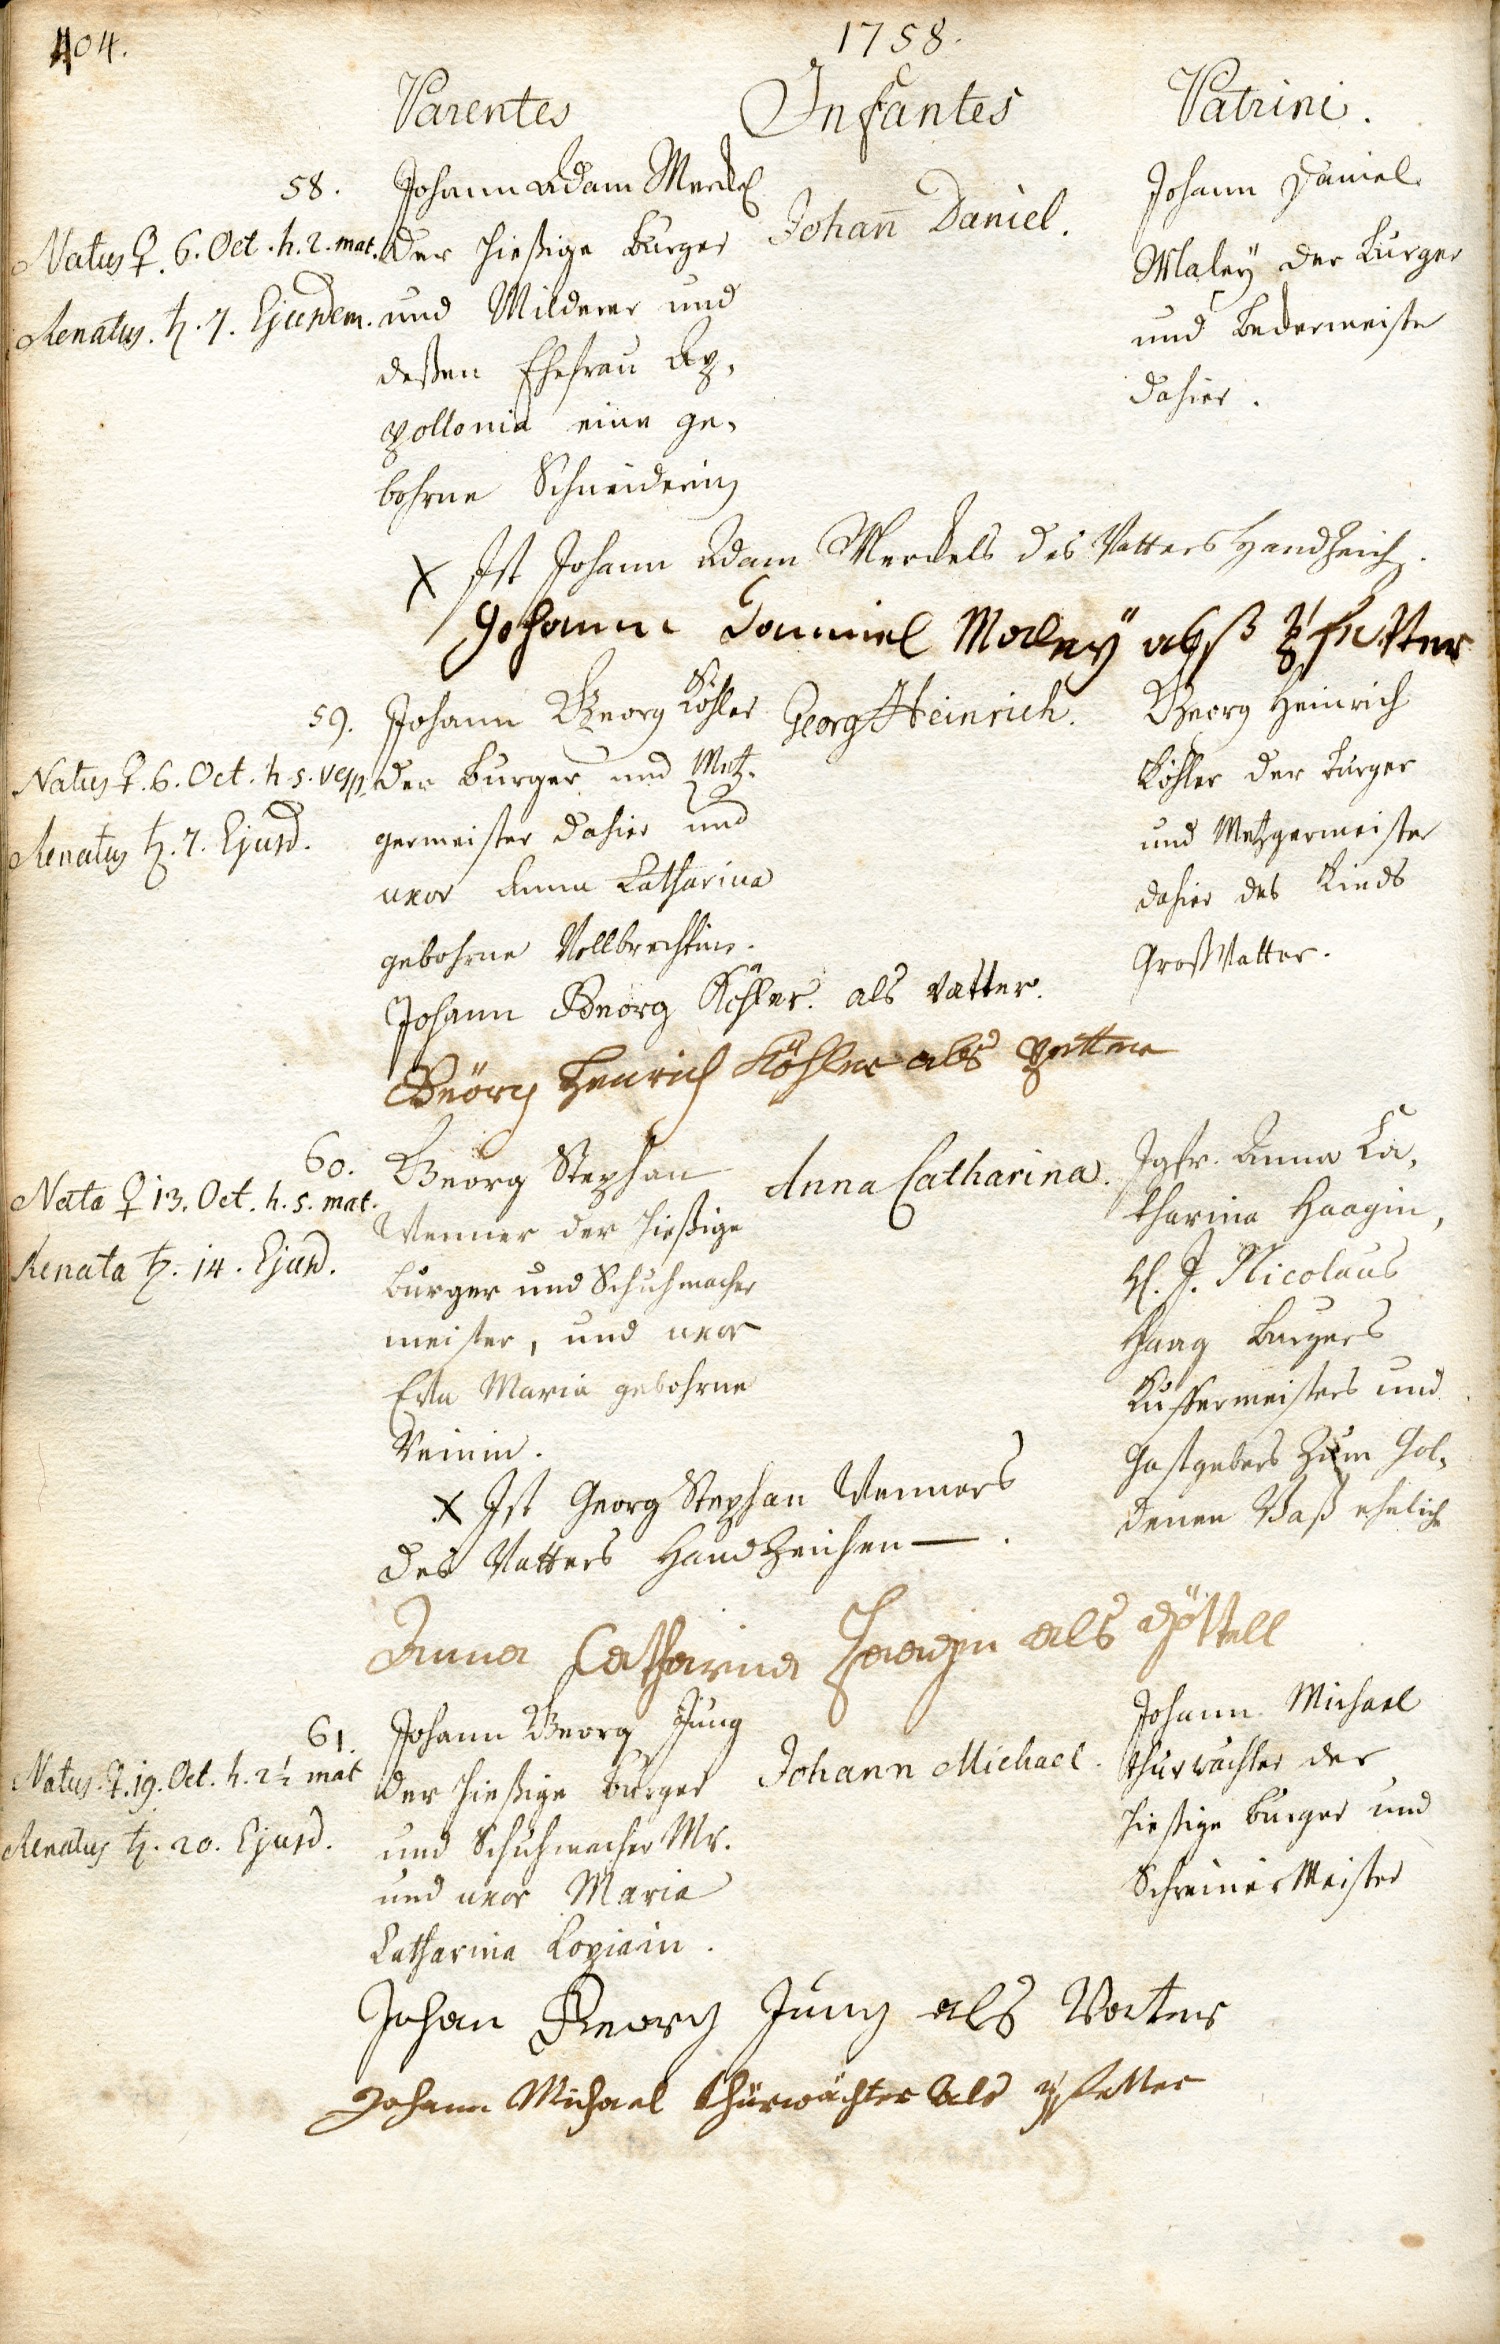 404.
1758.
Parentes Infantes Patrini.
58.
Natus ♀. 6. Oct. h. 2. mat.
Renatus. ♄. 7. Ejusdem.
Johann Adam Merckel
der hießige Burger
und und
deßen Ehefrau Ap„
pollonia eine ge„
bohrne Schneiderin
Johan̅ Daniel.
Johann Daniel
Maley der Burger
und
dahier.
X Ist Johann Adam Merckels des Vatters Handzeich.
Johann Danniel Maley alß Pfetter
59.
Natus ♀. 6. Oct. h. 5. vesp.
Renatus ♄. 7. Ejusd.
Johann Georg Köhler
der Burger und Metz„
germeister dahier und
uxor Anna Catharina
gebohrne Vollbrechtin.
Georg Heinrich.
Georg Heinrich
Köhler der Burger
und Metzgermeister
dahier des Kinds
Großvatter.
Johann Georg Köhler. als vatter.
Geörg Henrich Köhler als Petter
60.
Nata ♀ 13. Oct. h. 5. mat.
Renata ♄. 14. Ejusd.
Georg Stephan
Wenner der hießige
Burger und Schuhmacher
meister, und uxor
Eva Maria gebohrne
Anna Catharina.
Jgfr. Anna Ca„
tharina Haagin,
H. J. Nicolaus
Haag Burgers
Küffermeisters und
Gastgebers zum Gol„
denen Vaß ehelich
X Ist Georg Stephan Wenners
des Vatters Handzeichen — .
Anna Catharina Haagin als Göttell
61.
Natus. ♀. 19. Oct. h. 2½ mat
Renatus ♄. 20. Ejusd.
Johann Georg Jung
der hießige burger
und Schuhmacher Mr.
und uxor Maria
Catharina
Johann Michael.
Johann Michael
thürwächter der
hießige Burger und
Schreiner Meister
Johan Georg Jung als Vatter
Johann Michael thürwächter als pfetter